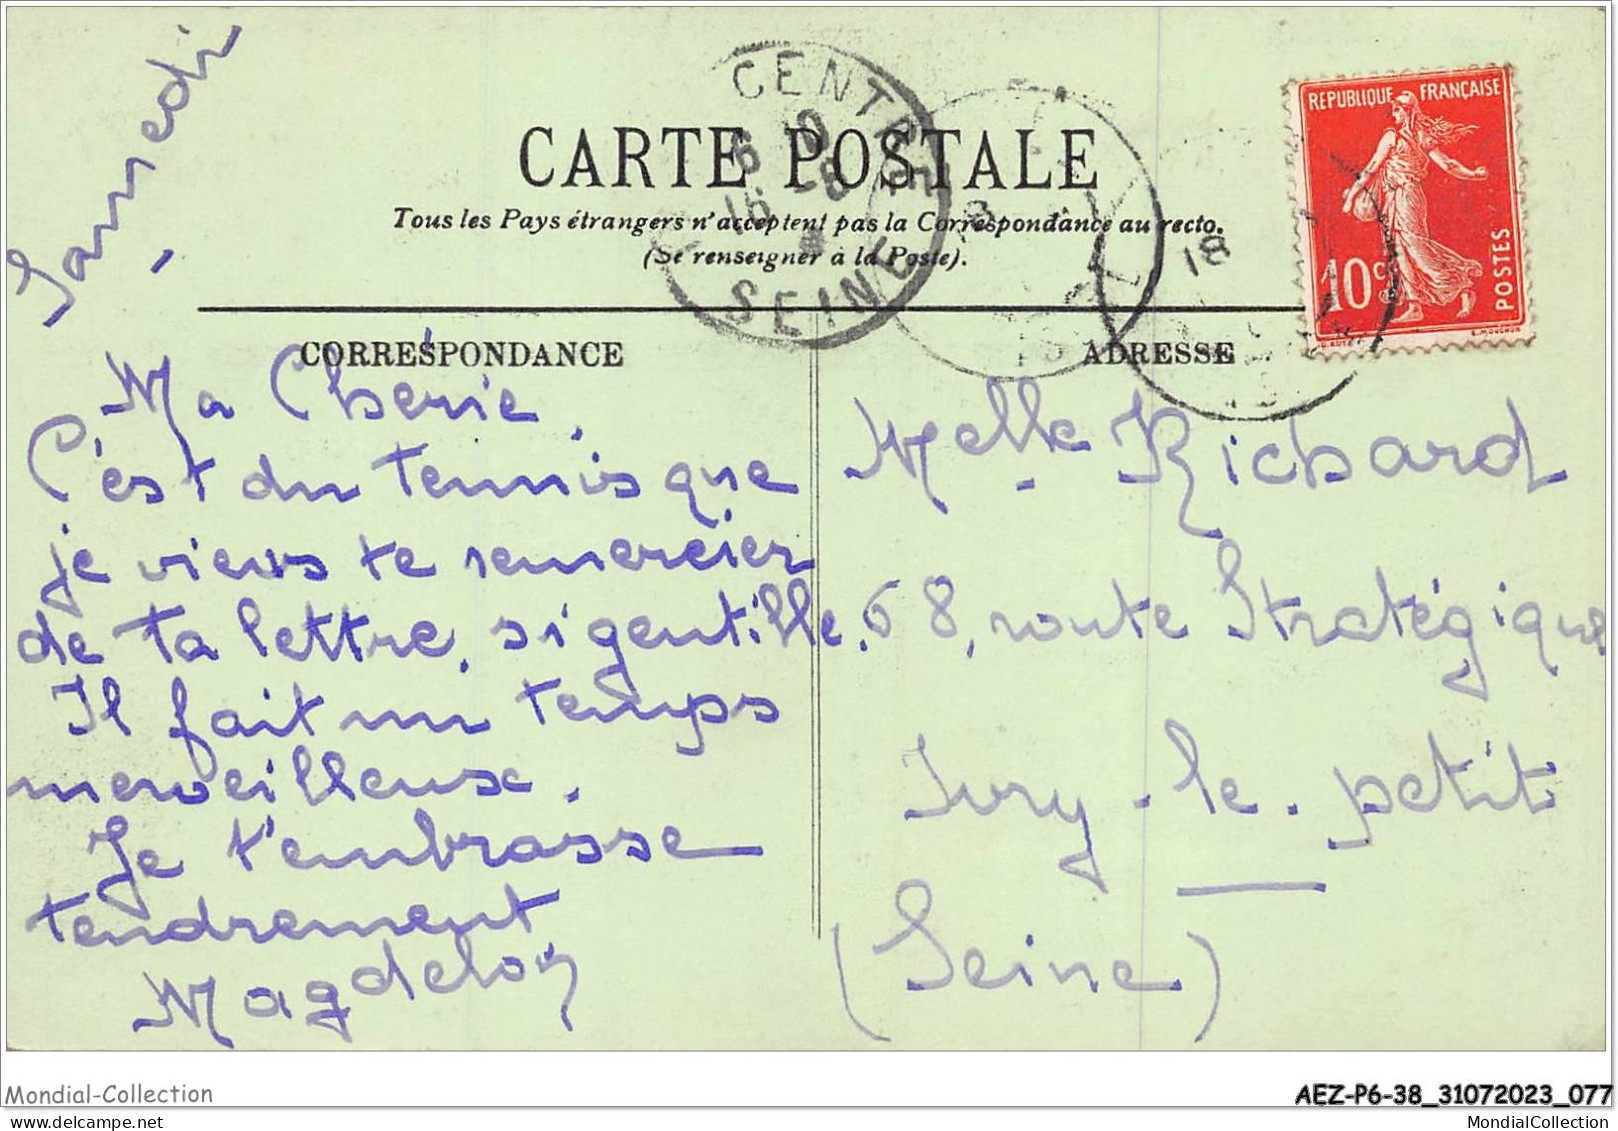 Samedi
CARTE POSTALE
Tous les Pays étrangers n'acceptent pas la Correspondance au recto.
(Se renseigner à la Poste).
CENTRE
6 10
15 -8
SEINE
18
REPUBLIQUE FRANÇAISE
10c
POSTES
CORRESPONDANCE
Ma Cherie,
C'est du tennis que
je viens te remercier
de ta lettre, si gentille.
Il fait un temps
merveilleux.
Je t'embrasse
tendrement
Magdelon
ADRESSE
Melle Richard
68, route Stratégique
Ivry-le-petit
(Seine)
Mondial-Collection
AEZ-P6-38_31072023_077
MondialCollection